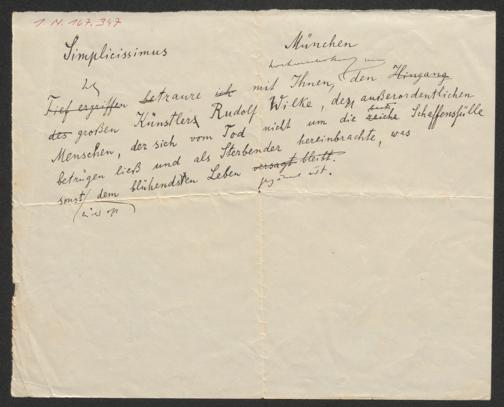 I.N. 167.347
Simplicissimus München
Ich
Tief ergriffen betraure ich mit Ihnen, den Hingang
des großen Künstlers Rudolf Wilke, den außerordentlichen
Menschen, der sich vom Tod nicht um die reiche Schaffensfülle
betrügen ließ und als Sterbender hereinbrachte, was
sonst dem blühendsten Leben versagt bleibt.
ist.